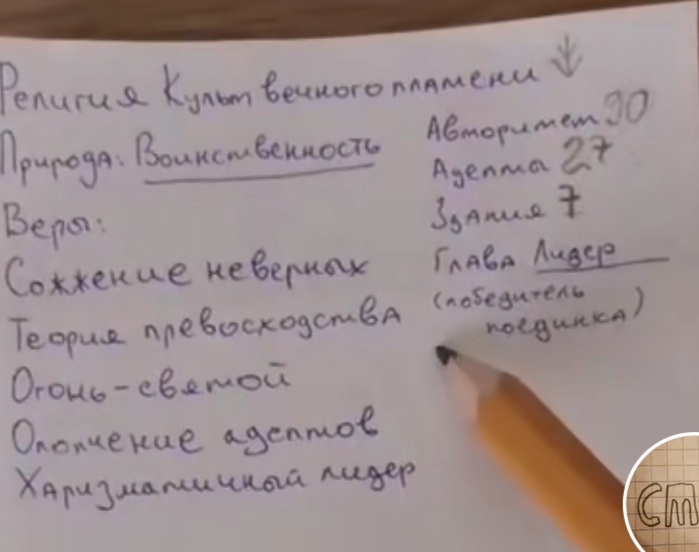 Религия Культ вечного пламени
Природа: Воинственность
Веры:
Сожжение неверных
Теория превосходства
Огонь-святой
Ополчение адептов
Харизматичный лидер
Авторитет 90
Адепты 27
Здания 7
Глава Лидер
(победитель
поединка)
ст